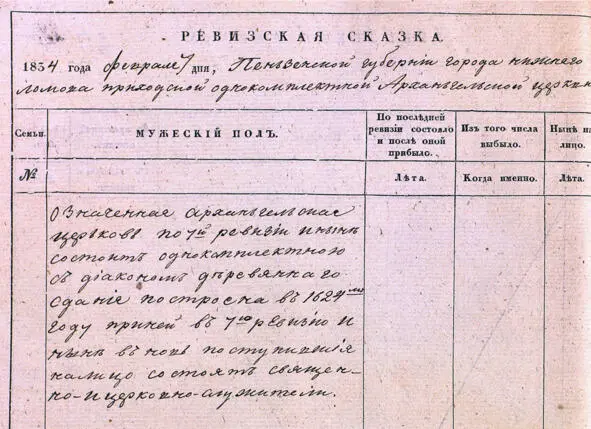 РЕВИЗСКАЯ СКАЗКА.
1834 года февраля 7 дня, Пензенской губернiи города нижнего
ломова приходской однокомплектной Архангельской церкви
Семьи.
МУЖЕСКIЙ ПОЛЪ.
По последней
ревизiи состояло
и после оной
прибыло.
Изъ того числа
выбыло.
Нынѣ на
лицо.
№
Лѣта.
Когда именно.
Лѣта.
Означенная архангельская
церьковь по 7ю ревизiи и нынѣ
состоитъ однокомплектною
съ дiакономъ деревяннаго
зданiе построена въ 1624мъ
году при ней въ 7ю ревизiю и
нынѣ въ новь поступившiя
налицо состоятъ священ-
но-и церковно-служители.